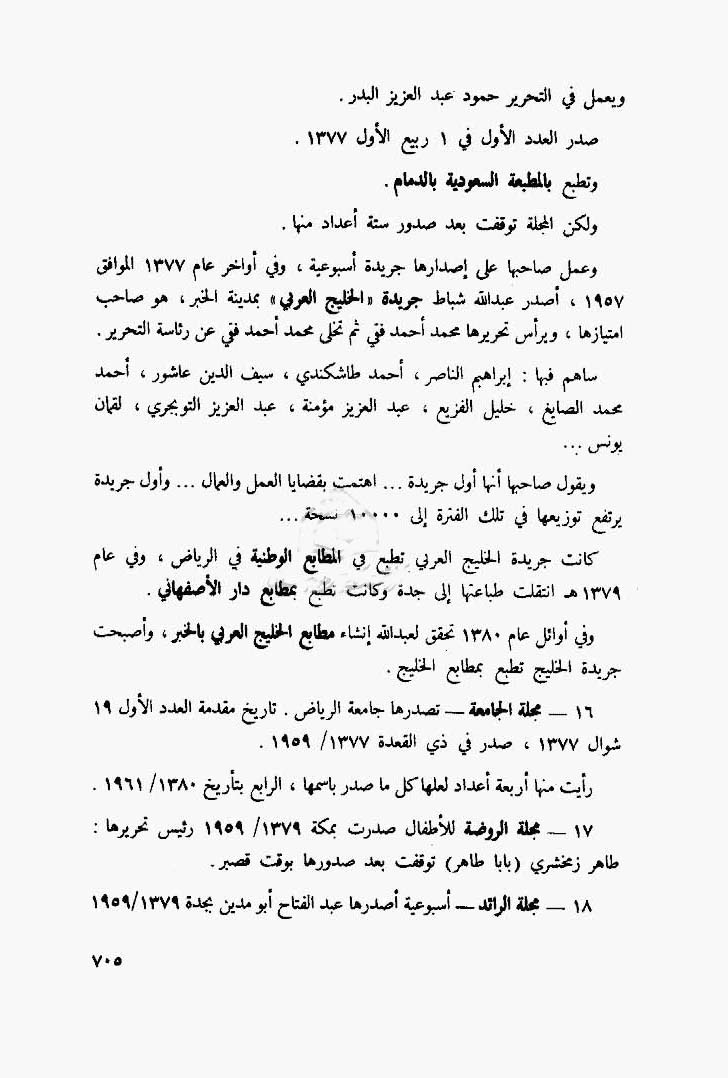 ويعمل في التحرير حمود عبد العزيز البدر .
صدر العدد الأول في ١ ربيع الأول ١٣٧٧ .
وتطبع بالمطبعة السعودية بالدمام .
ولكن المجلة توقفت بعد صدور ستة أعداد منها .
وعمل صاحبها على إصدارها جريدة أسبوعية ، وفي أواخر عام ١٣٧٧ الموافق
١٩٥٧ ، أصدر عبدالله شباط جريدة «الخليج العربي» بمدينة الخبر ، هو صاحب
امتيازها ، ويرأس تحريرها محمد أحمد فقي ثم تخلى محمد أحمد فقي عن رئاسة التحرير .
ساهم فيها : إبراهيم الناصر ، أحمد طاشكندي ، سيف الدين عاشور ، أحمد
محمد الصايغ ، خليل الفزيع ، عبد العزيز مؤمنة ، عبد العزيز التويجري ، لقمان
يونس ...
ويقول صاحبها أنها أول جريدة ... اهتمت بقضايا العمل والعمال ... وأول جريدة
يرتفع توزيعها في تلك الفترة إلى ١٠٠٠٠ نسخة ...
كانت جريدة الخليج العربي تطبع في المطابع الوطنية في الرياض ، وفي عام
١٣٧٩هـ انتقلت طباعتها إلى جدة وكانت تطبع بمطابع دار الأصفهاني .
وفي أوائل عام ١٣٨٠ تحقق لعبدالله إنشاء مطابع الخليج العربي بالخبر ، وأصبحت
جريدة الخليج تطبع بمطابع الخليج .
١٦ — مجلة الجامعة — تصدرها جامعة الرياض . تاريخ مقدمة العدد الأول ١٩
شوال ١٣٧٧ ، صدر في ذي القعدة ١٣٧٧/ ١٩٥٩ .
رأيت منها أربعة أعداد لعلها كل ما صدر باسمها ، الرابع بتأريخ ١٣٨٠/ ١٩٦١ .
١٧ — مجلة الروضة للأطفال صدرت بمكة ١٣٧٩/ ١٩٥٩ رئيس تحريرها :
طاهر زمخشري (بابا طاهر) توقفت بعد صدورها بوقت قصير .
١٨ — مجلة الرائد — أسبوعية أصدرها عبد الفتاح أبو مدين بجدة ١٩٥٩/١٣٧٩
٧٠٥